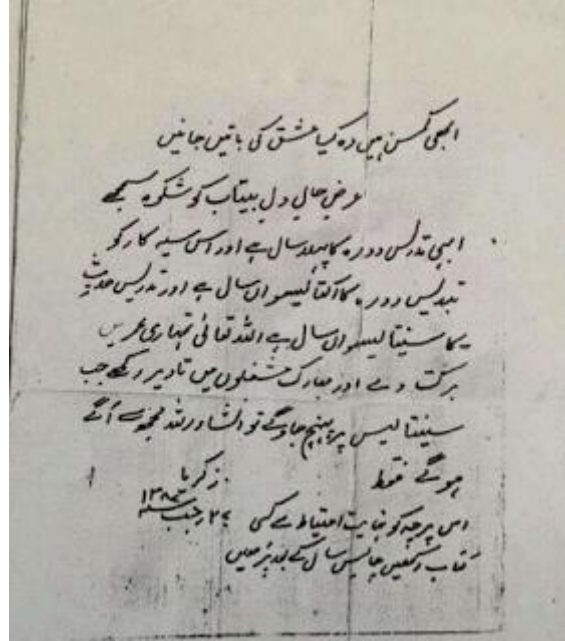 ابھی کمسن ہیں وہ کیا عشق کی باتیں جانیں
عرض حال دل بیتاب کو شکوہ سمجھے
ابھی تدریس دورہ کا پہلا سال ہے اور اس سیہ کار کو
تدریس دورہ کا اکتالیسواں سال ہے اور تدریس حدیث
کا سینتالیسواں سال ہے اللہ تعالیٰ تمہاری عمر میں
برکت دے اور مبارک مشغلوں میں تادیر رکھے جب
سینتالیس پر پہنچ جاوگے تو انشاء اللہ مجھ سے آگے
ہوگے فقط
زکریا
اس پرچہ کو نہایت احتیاط سے کسی
۲۷ رجب
کتاب میں رکھیں چالیس سال کے بعد پڑھیں